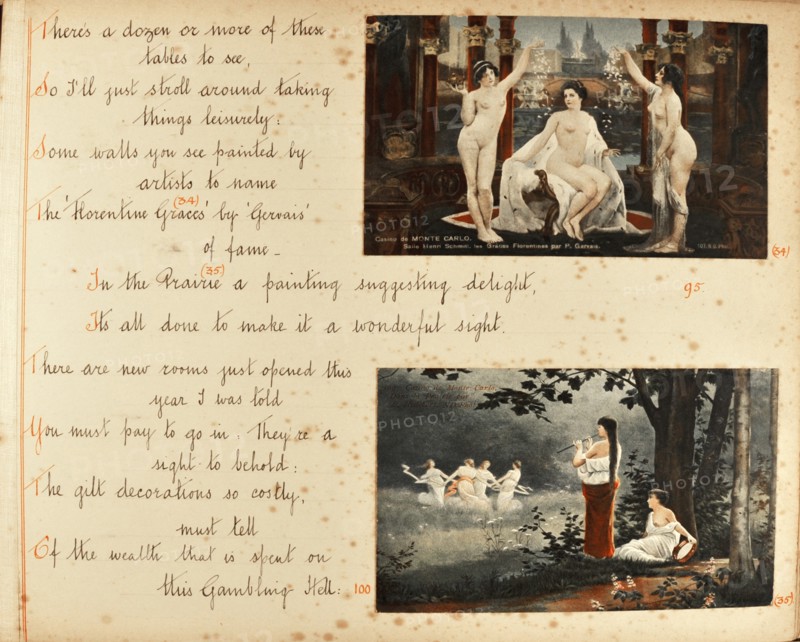 There's a dozen or more of these
tables to see,
So I'll just stroll around taking
things leisurely:
Some walls you see painted by
artists to name
(34)
The 'Florentine Graces' by 'Gervais'
of fame -
(35)
In the Prairie a painting suggesting delight, 95.
Its all done to make it a wonderful sight.
There are new rooms just opened this
year I was told
You must pay to go in. They're a
sight to behold:
The gilt decorations so costly,
must tell
Of the wealth that is spent on
this Gambling Hell: 100
Casino de MONTE CARLO.
Salle Henri Schmit, les Graces Florentines par P. Gervais.
(34)
Monte Carlo.
(35)
PHOTO12